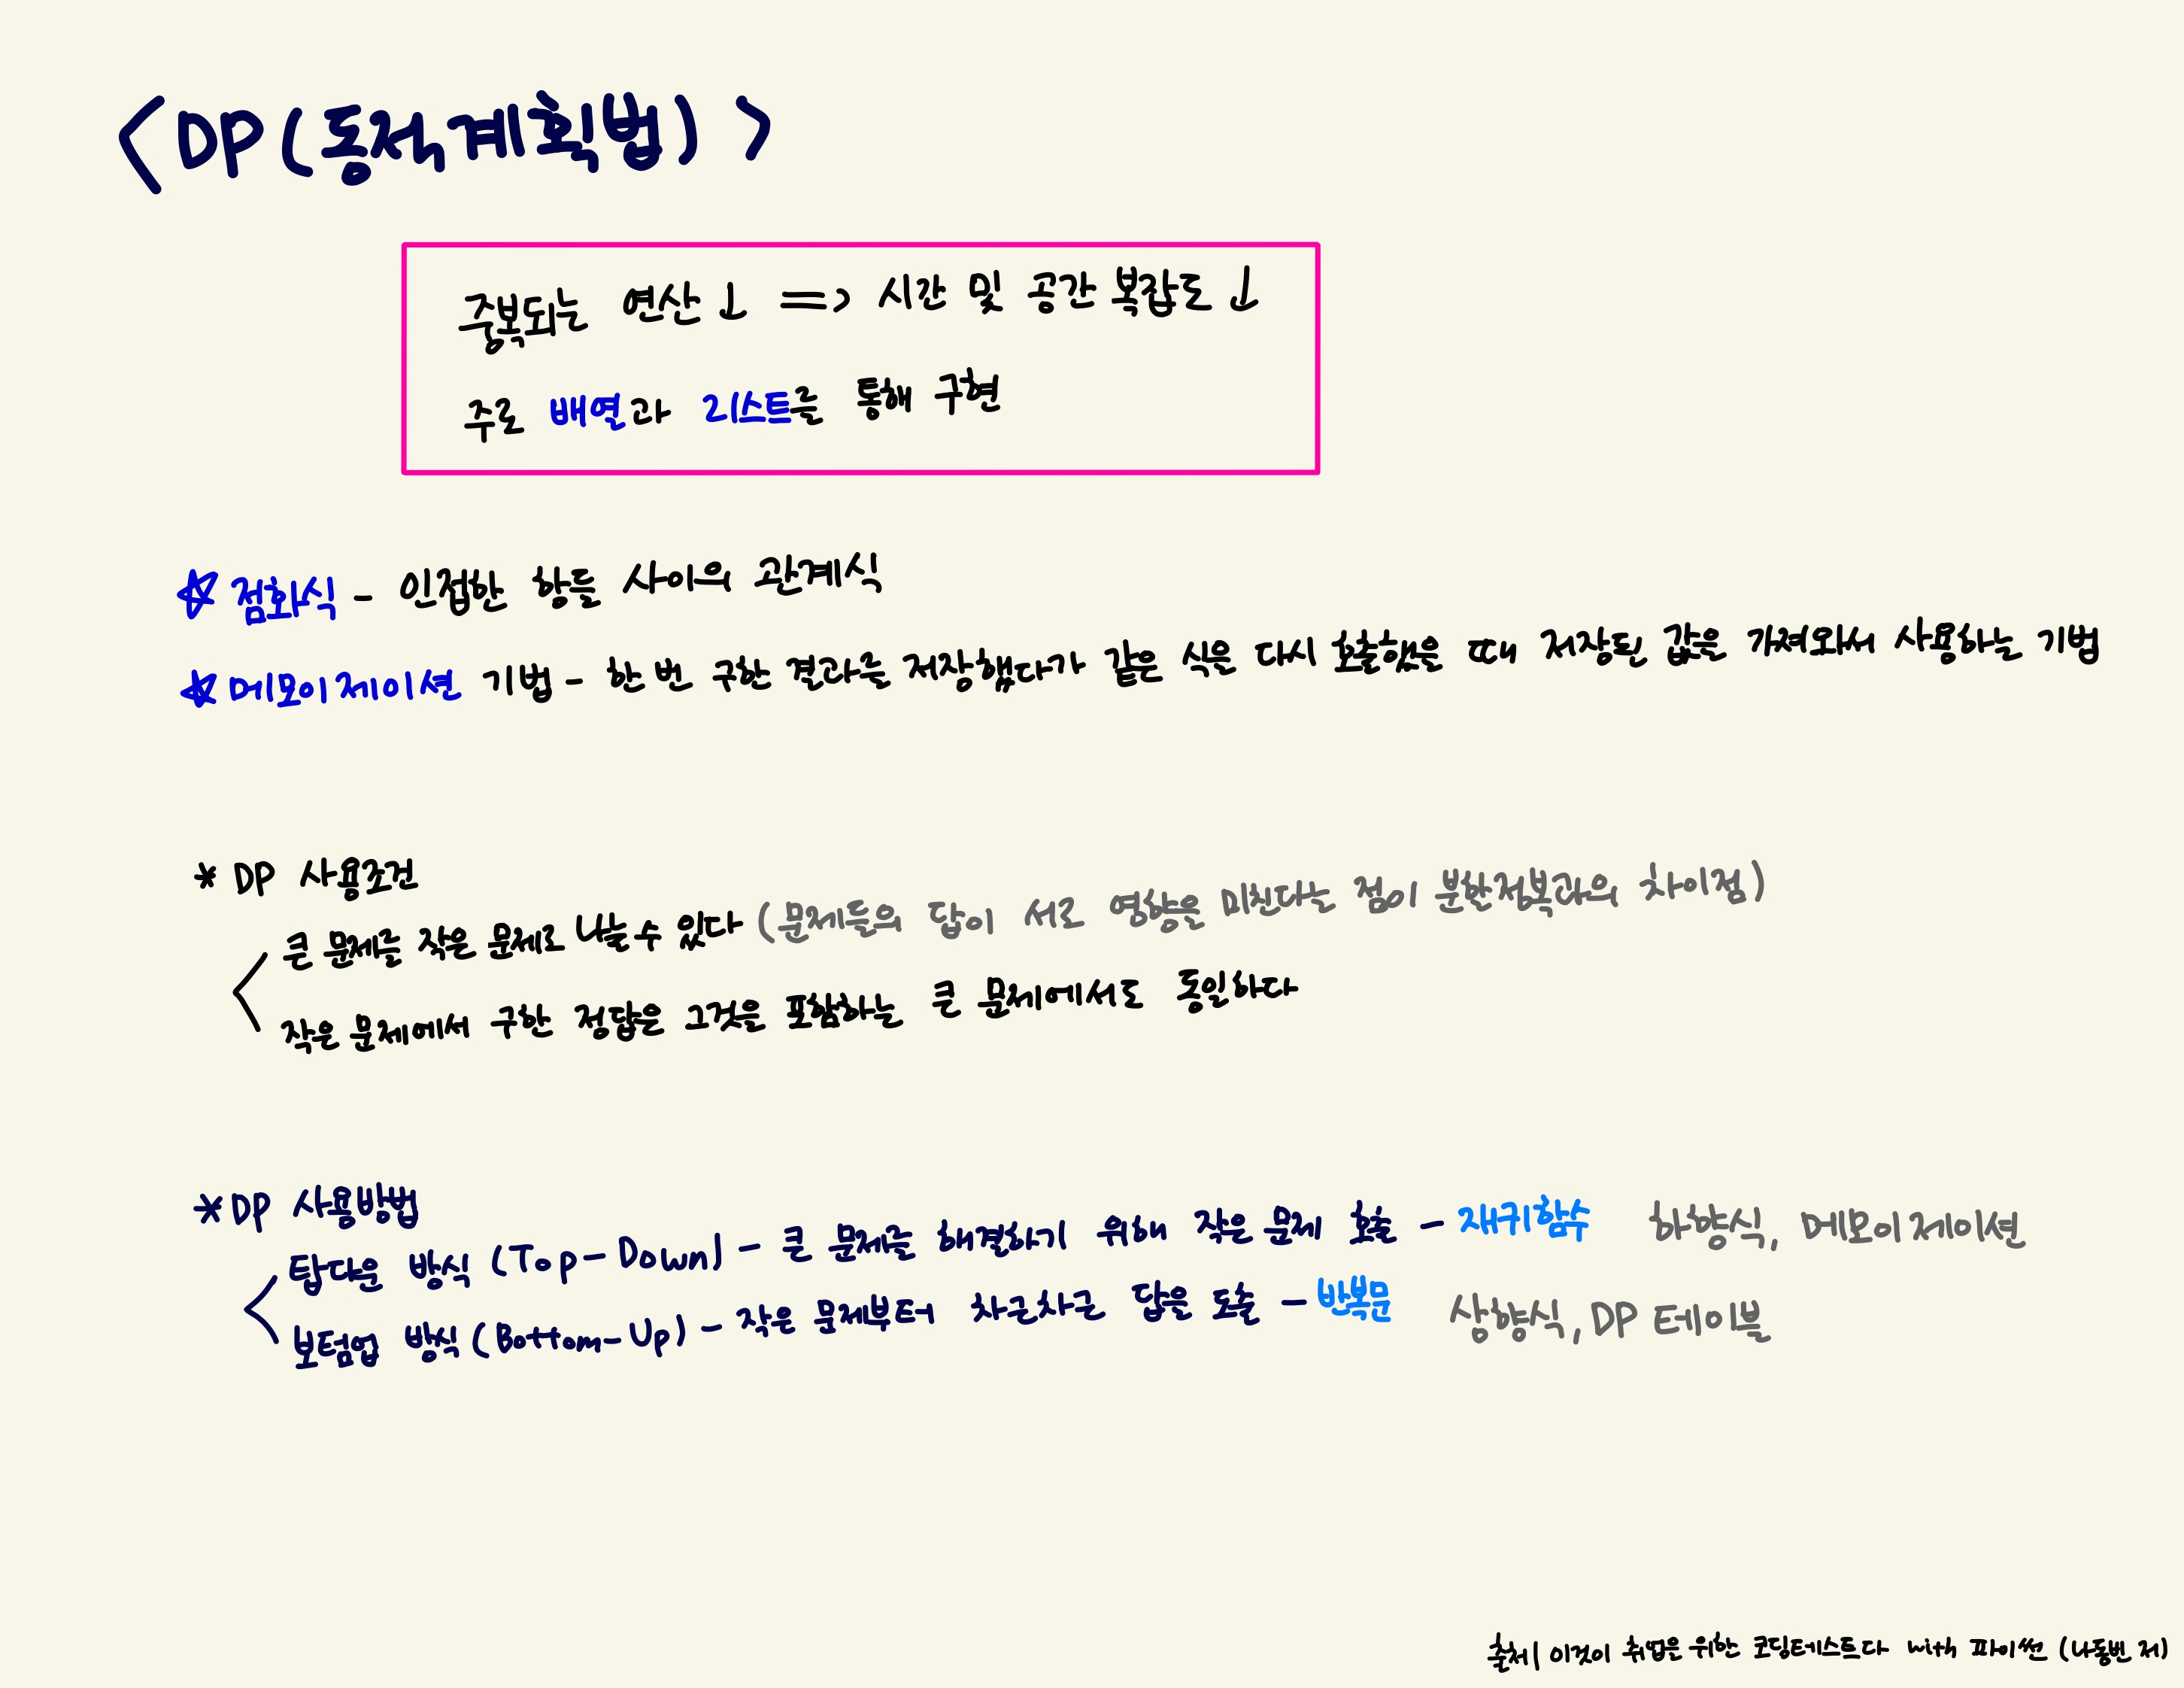 <DP(동적계획법)>
중복되는 연산↓ => 시간 및 공간 복잡도↓
주로 배열과 리스트를 통해 구현
☆ 점화식 - 인접한 항들 사이의 관계식
☆ 메모이제이션 기법 - 한 번 구한 결과를 저장했다가 같은 식을 다시 호출했을 때 저장된 값을 가져와서 사용하는 기법
* DP 사용조건
큰 문제를 작은 문제로 나눌 수 있다 (문제들의 답이 서로 영향을 미친다는 점이 분할정복과의 차이점)
작은 문제에서 구한 정답은 그것을 포함하는 큰 문제에서도 동일하다
* DP 사용방법
탑다운 방식 (Top-Down) - 큰 문제를 해결하기 위해 작은 문제 호출 - 재귀함수 하향식, 메모이제이션
보텀업 방식 (Bottom-Up) - 작은 문제부터 차근차근 답을 도출 - 반복문 상향식, DP 테이블
출처| 이것이 취업을 위한 코딩테스트다 with 파이썬 (나동빈 저)